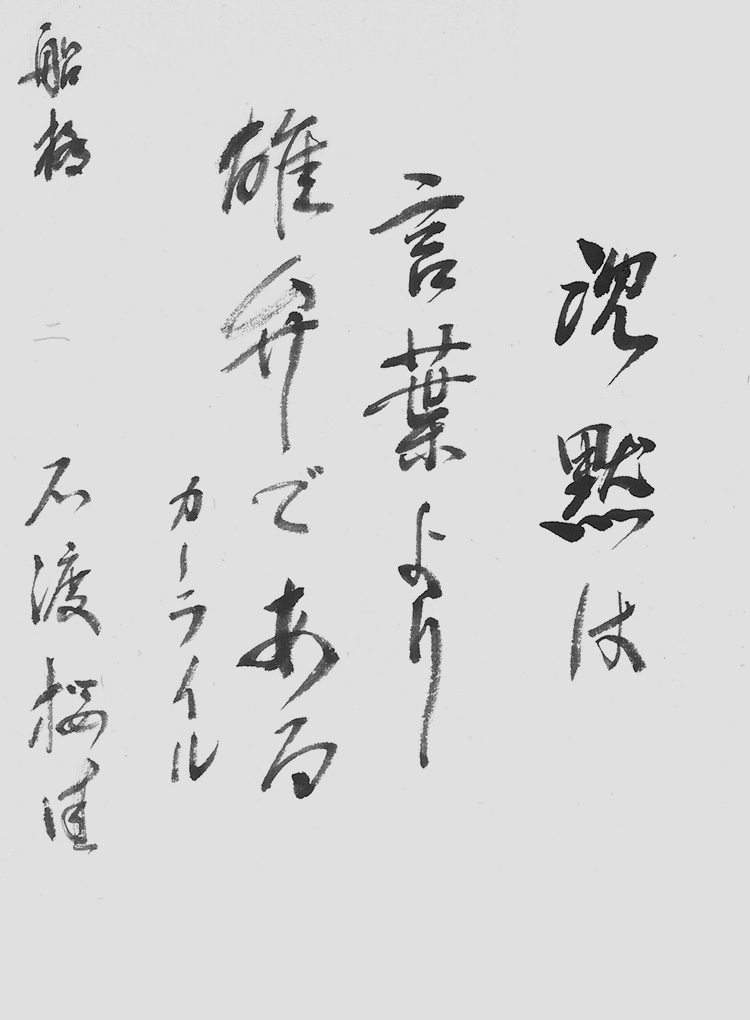 沈黙は
言葉より
雄弁である
カーライル
船橋 二 石渡桜佳